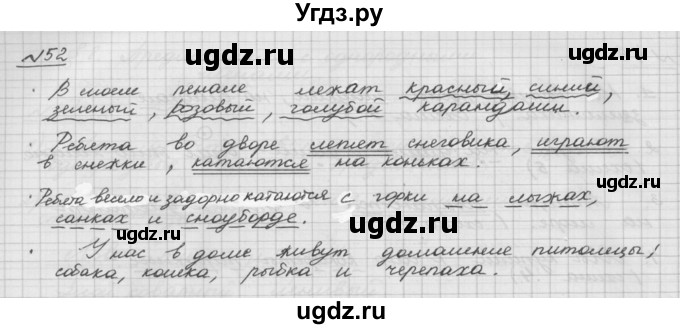 Угдз.ру
№52
· В моем пенале лежат красный, синий,
зеленый, розовый, голубой карандаши.
· Ребята во дворе лепят снеговика, играют
в снежки, катаются на коньках.
· Ребята весело и задорно катаются с горки на лыжах,
санках и сноуборде.
· У нас в доме живут домашние питомцы;
собака, кошка, рыбка и черепаха.
ugdz.ru ugdz.ru
ugdz.ru ugdz.ru
ugdz.ru ugdz.ru
ugdz.ru ugdz.ru